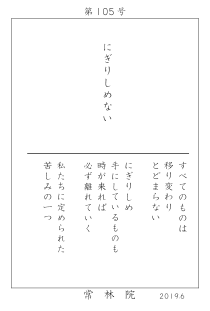 第105号
にぎりしめない
すべてのものは
移り変わり
とどまらない
にぎりしめ
手にしているものも
時が来れば
必ず離れていく
私たちに定められた
苦しみの一つ
常林院 2019.6